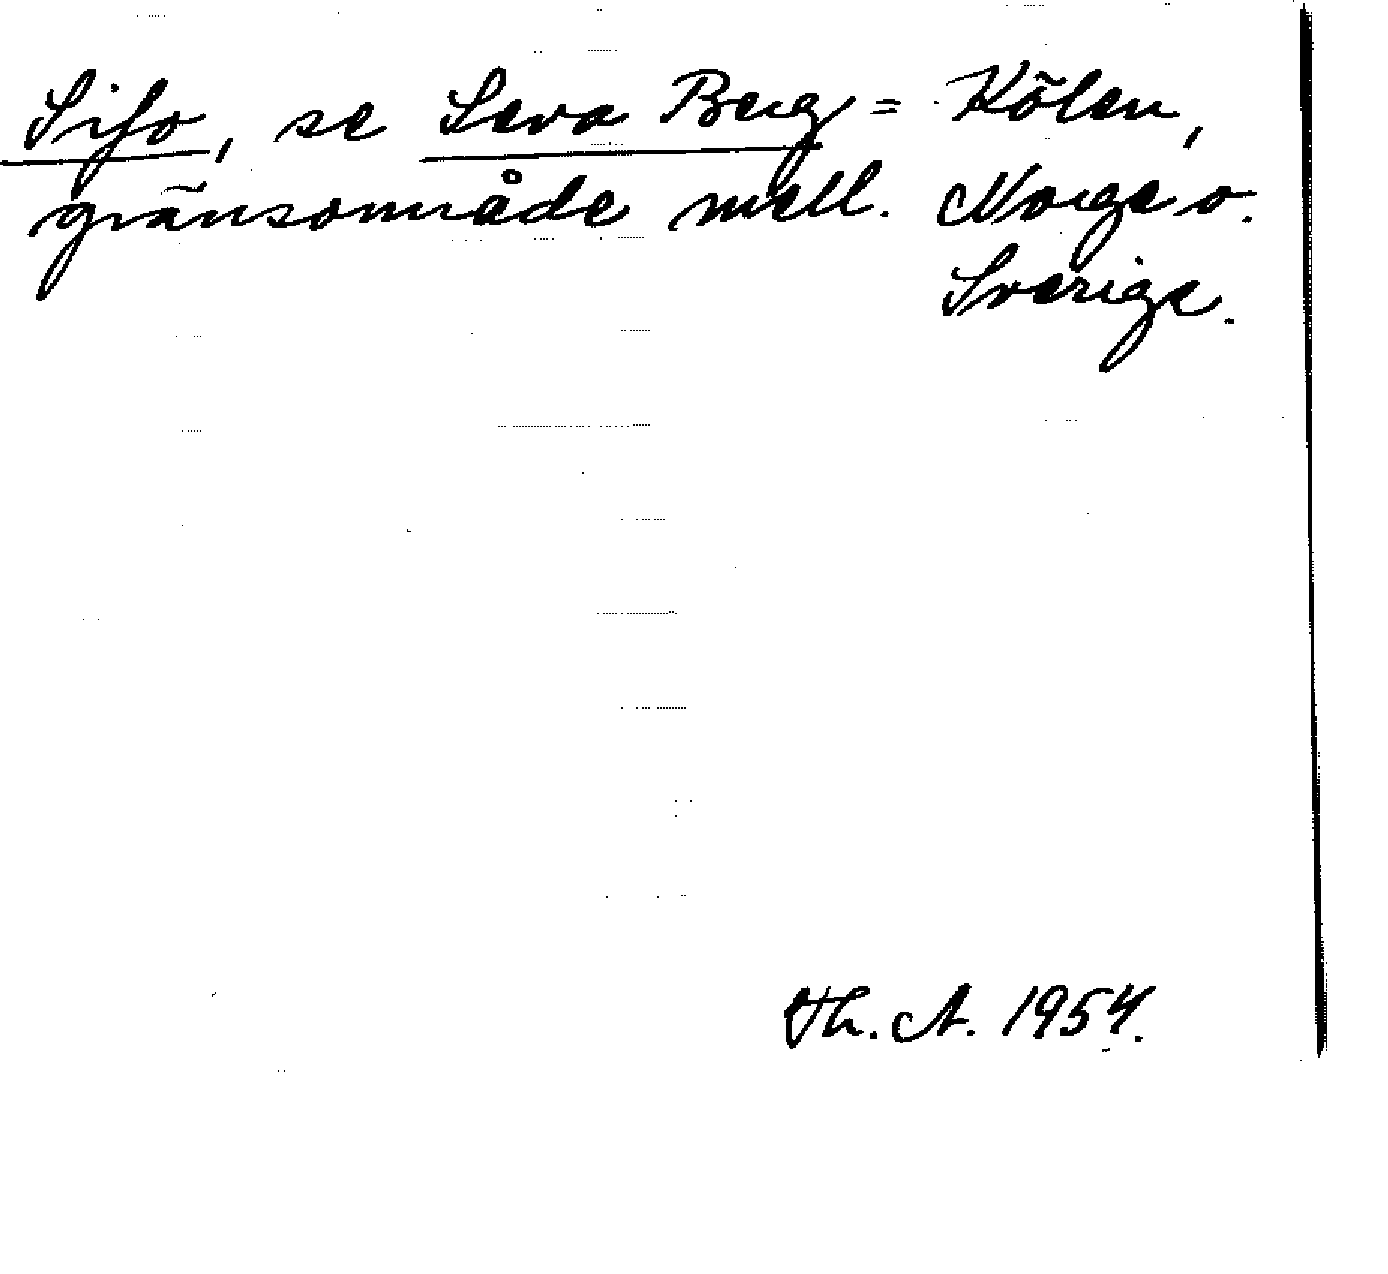 Sifo, se Seva Berg = Kölen,
gränsområde mell. Norge o.
Sverige.
Th. A. 1954.